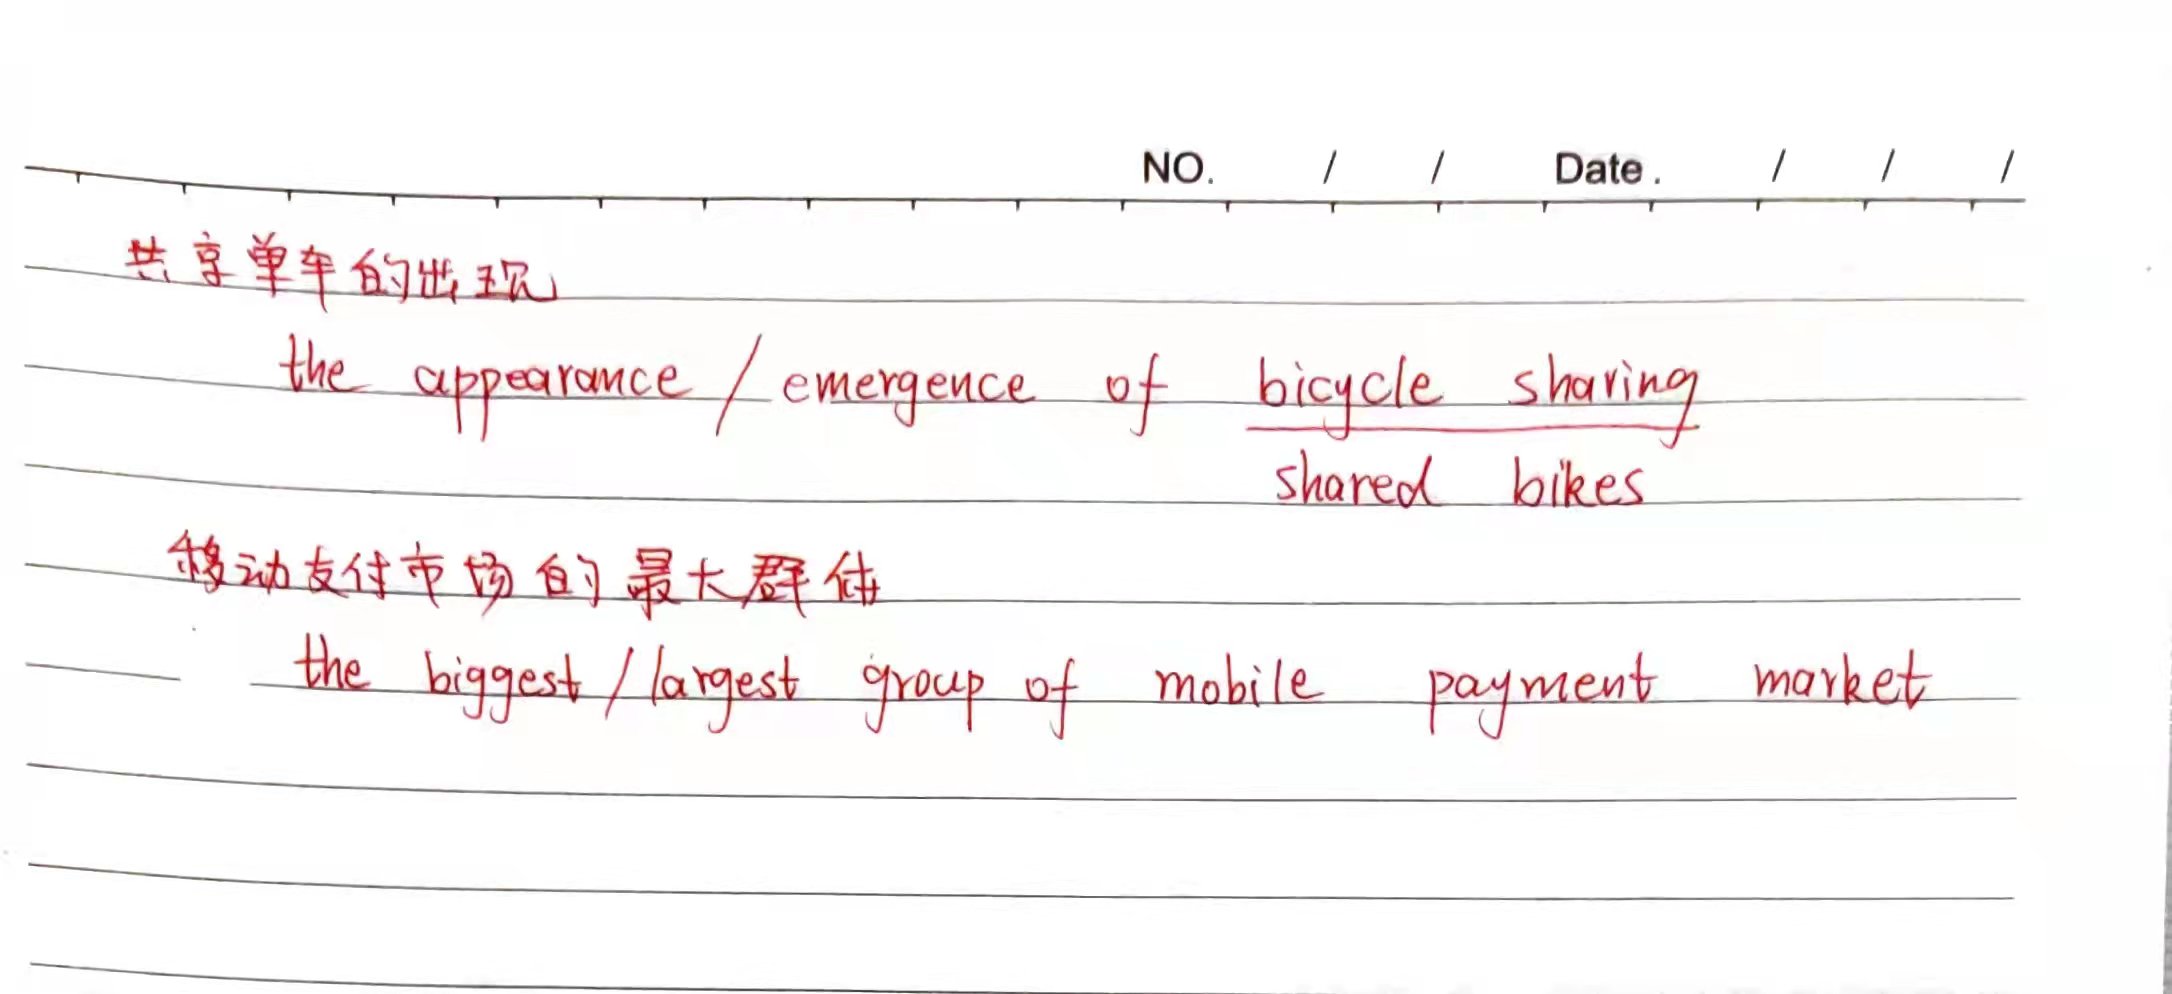 NO. / / Date. / / /
共享单车的出现
the appearance / emergence of bicycle sharing
shared bikes
移动支付市场的最大群体
the biggest / largest group of mobile payment market